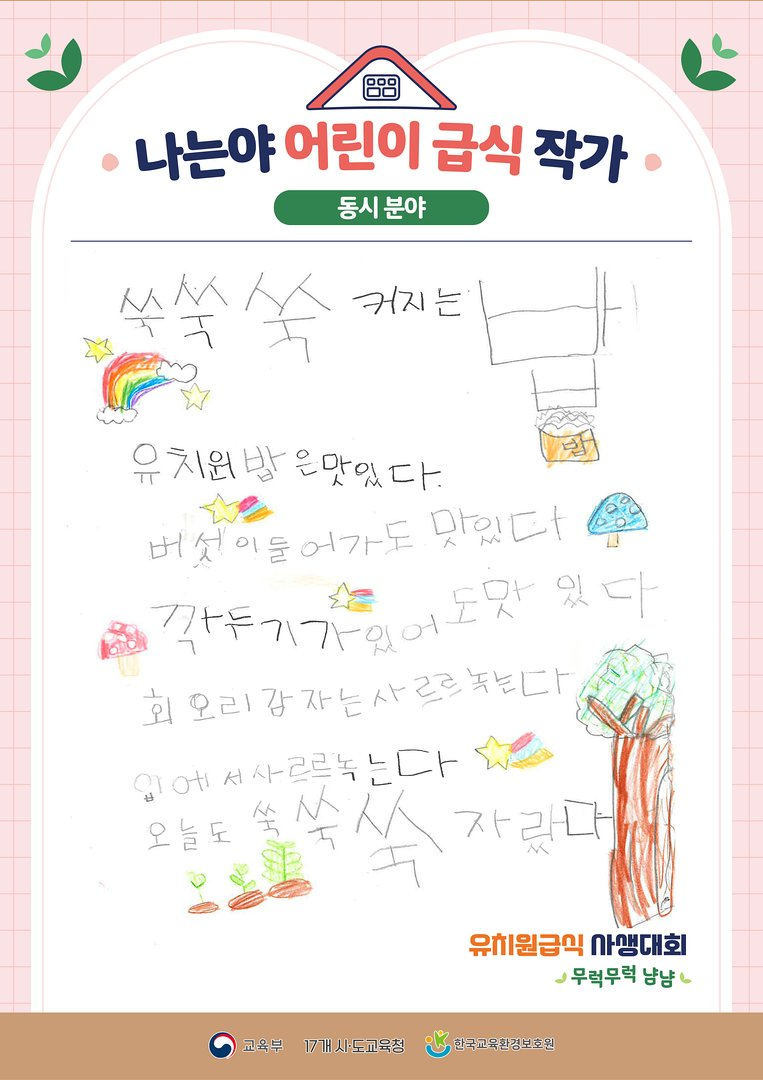 나는야 어린이 급식 작가
동시 분야
쑥쑥쑥 커지는 밥
밥
유치원 밥은 맛있다.
버섯이 들어가도 맛있다
깍두기가 있어도 맛있다
회오리감자는 사르르 녹는다
입에서 사르르 녹는다
오늘도 쑥쑥쑥 자랐다
유치원급식 사생대회
무럭무럭 냠냠
교육부 17개 시·도교육청 한국교육환경보호원